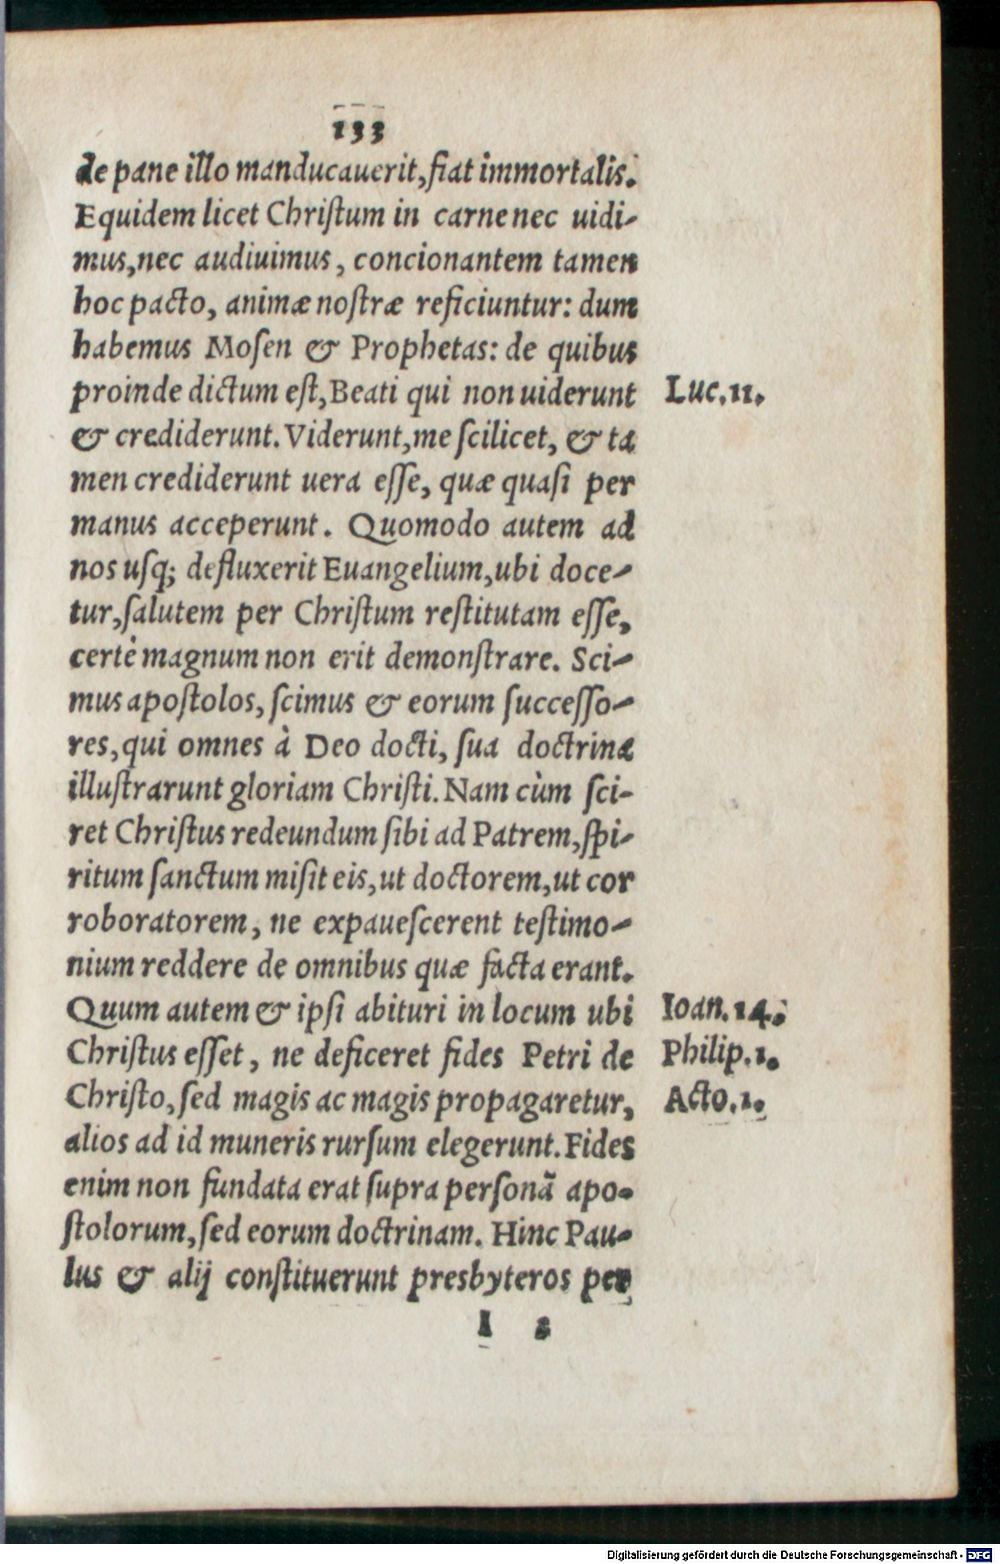 133
de pane illo manducauerit, fiat immortalis.
Equidem licet Chriſtum in carne nec uidi-
mus, nec audiuimus, concionantem tamen
hoc pacto, animæ noſtræ reficiuntur: dum
habemus Moſen & Prophetas: de quibus
proinde dictum eſt, Beati qui non uiderunt Luc. 11.
& crediderunt. Viderunt, me ſcilicet, & ta
men crediderunt uera eſſe, quæ quaſi per
manus acceperunt. Quomodo autem ad
nos uſq; defluxerit Euangelium, ubi doce-
tur, ſalutem per Chriſtum reſtitutam eſſe,
certè magnum non erit demonſtrare. Sci-
mus apoſtolos, ſcimus & eorum ſucceſſo-
res, qui omnes à Deo docti, ſua doctrina
illuſtrarunt gloriam Chriſti. Nam cùm ſci-
ret Chriſtus redeundum ſibi ad Patrem, ſpi-
ritum ſanctum miſit eis, ut doctorem, ut cor
roboratorem, ne expaueſcerent teſtimo-
nium reddere de omnibus quæ facta erant.
Quum autem & ipſi abituri in locum ubi Ioan. 14.
Chriſtus eſſet, ne deficeret fides Petri de Philip. 1.
Chriſto, ſed magis ac magis propagaretur, Acto. 1.
alios ad id muneris rurſum elegerunt. Fides
enim non fundata erat ſupra perſonã apo-
ſtolorum, ſed eorum doctrinam. Hinc Pau-
lus & alij conſtituerunt presbyteros per
I 2
Digitalisierung gefördert durch die Deutsche Forschungsgemeinschaft - DFG